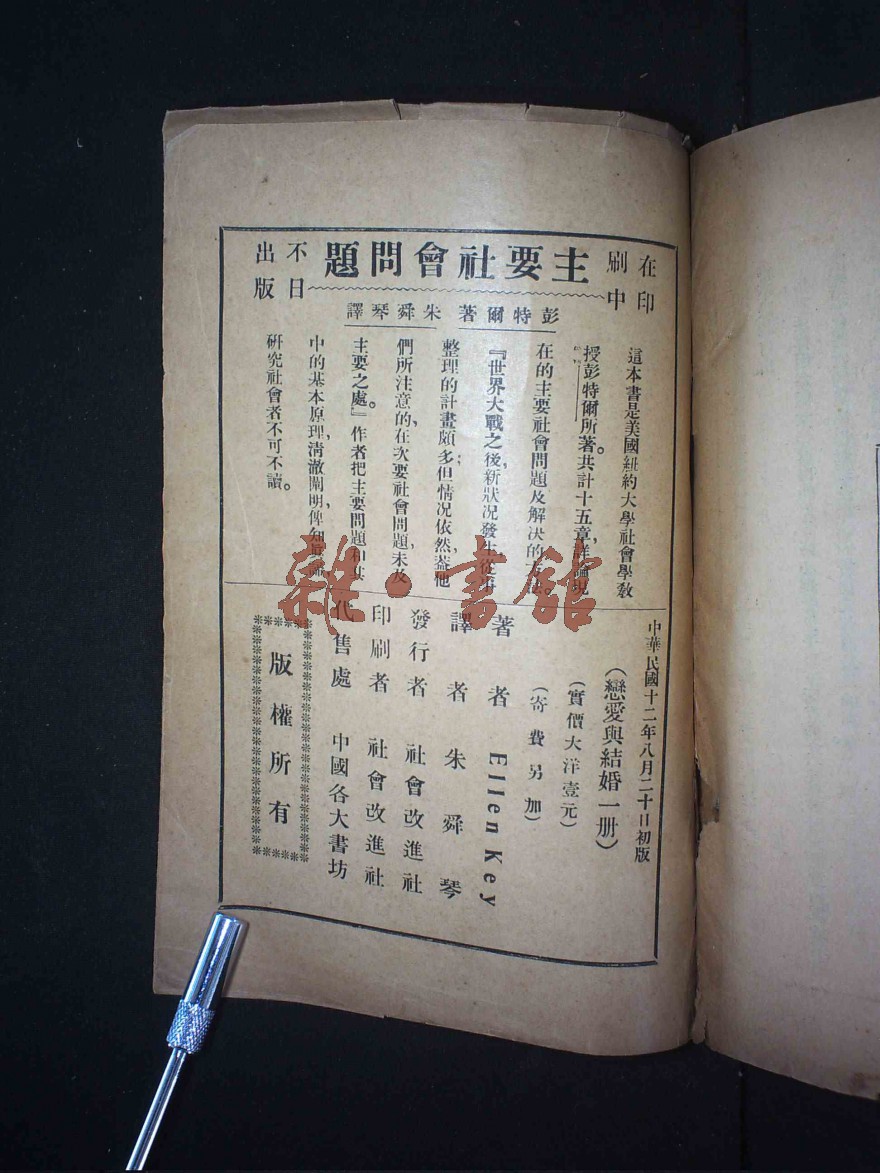 在印
刷中
主要社會問題
不日
出版
彭特爾著 朱舜琴譯
這本書是美國紐約大學社會學敎
授彭特爾所著。共計十五章,詳論現
在的主要社會問題及解決的方法。
『世界大戰之後,新狀况發生,從事
整理的計畫頗多;但情况依然,蓋他
們所注意的,在次要社會問題,未及
主要之處。』作者把主要問題和其
中的基本原理,淸澈闡明,俾知
硏究社會者不可不讀。
中華民國十二年八月二十日初版
(戀愛與結婚一册)
(實價大洋壹元)
(寄費另加)
著者 Ellen Key
譯者 朱舜琴
發行者 社會改進社
印刷者 社會改進社
代售處 中國各大書坊
版權所有
雜·書館